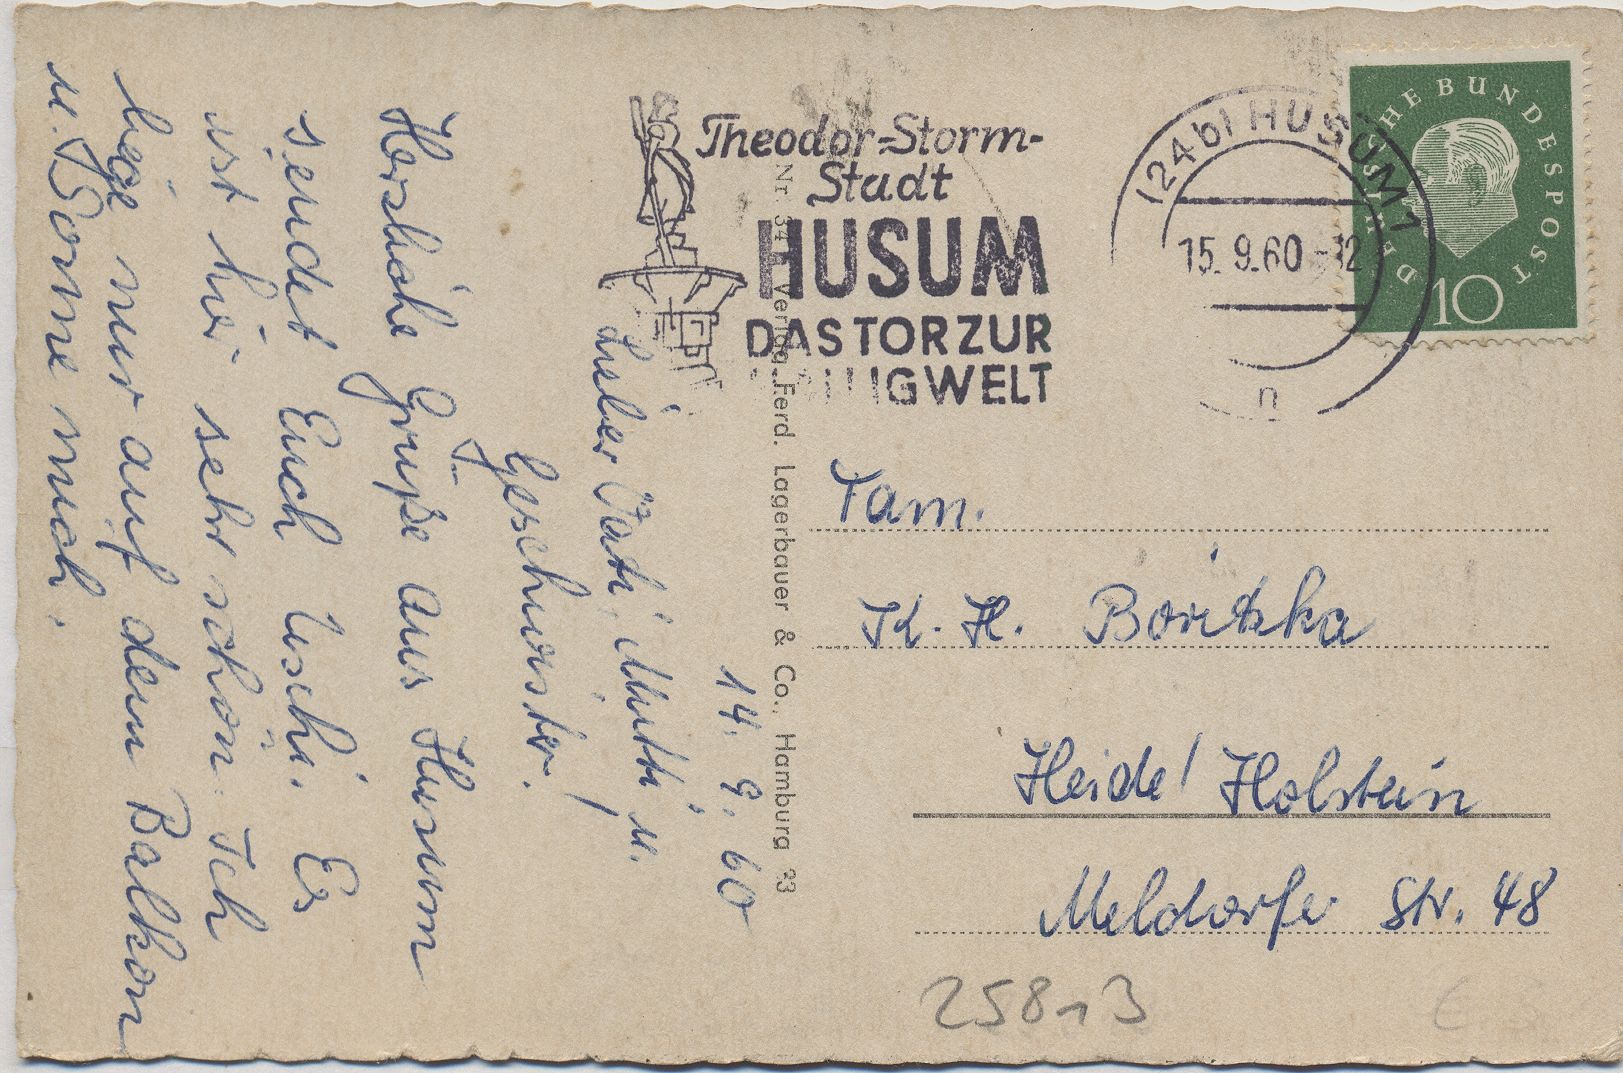 14. 9. 60
Lieber Vati, Mutti u.
Geschwister!
Herzliche Grüße aus Husum
sendet Euch Uschi. Es
ist hier sehr schön. Ich
liege nur auf dem Balkon
u. Sonne mich.
Nr. 34 Verlag Ferd. Lagerbauer & Co., Hamburg 33
Theodor-Storm-
Stadt
HUSUM
DAS TOR ZUR
HALLIGWELT
(24b) HUSUM 1
15. 9. 60 - 12
n
DEUTSCHE BUNDESPOST
10
Fam.
K. H. Boritzka
Heide / Holstein
Meldorfer Str. 48
25813